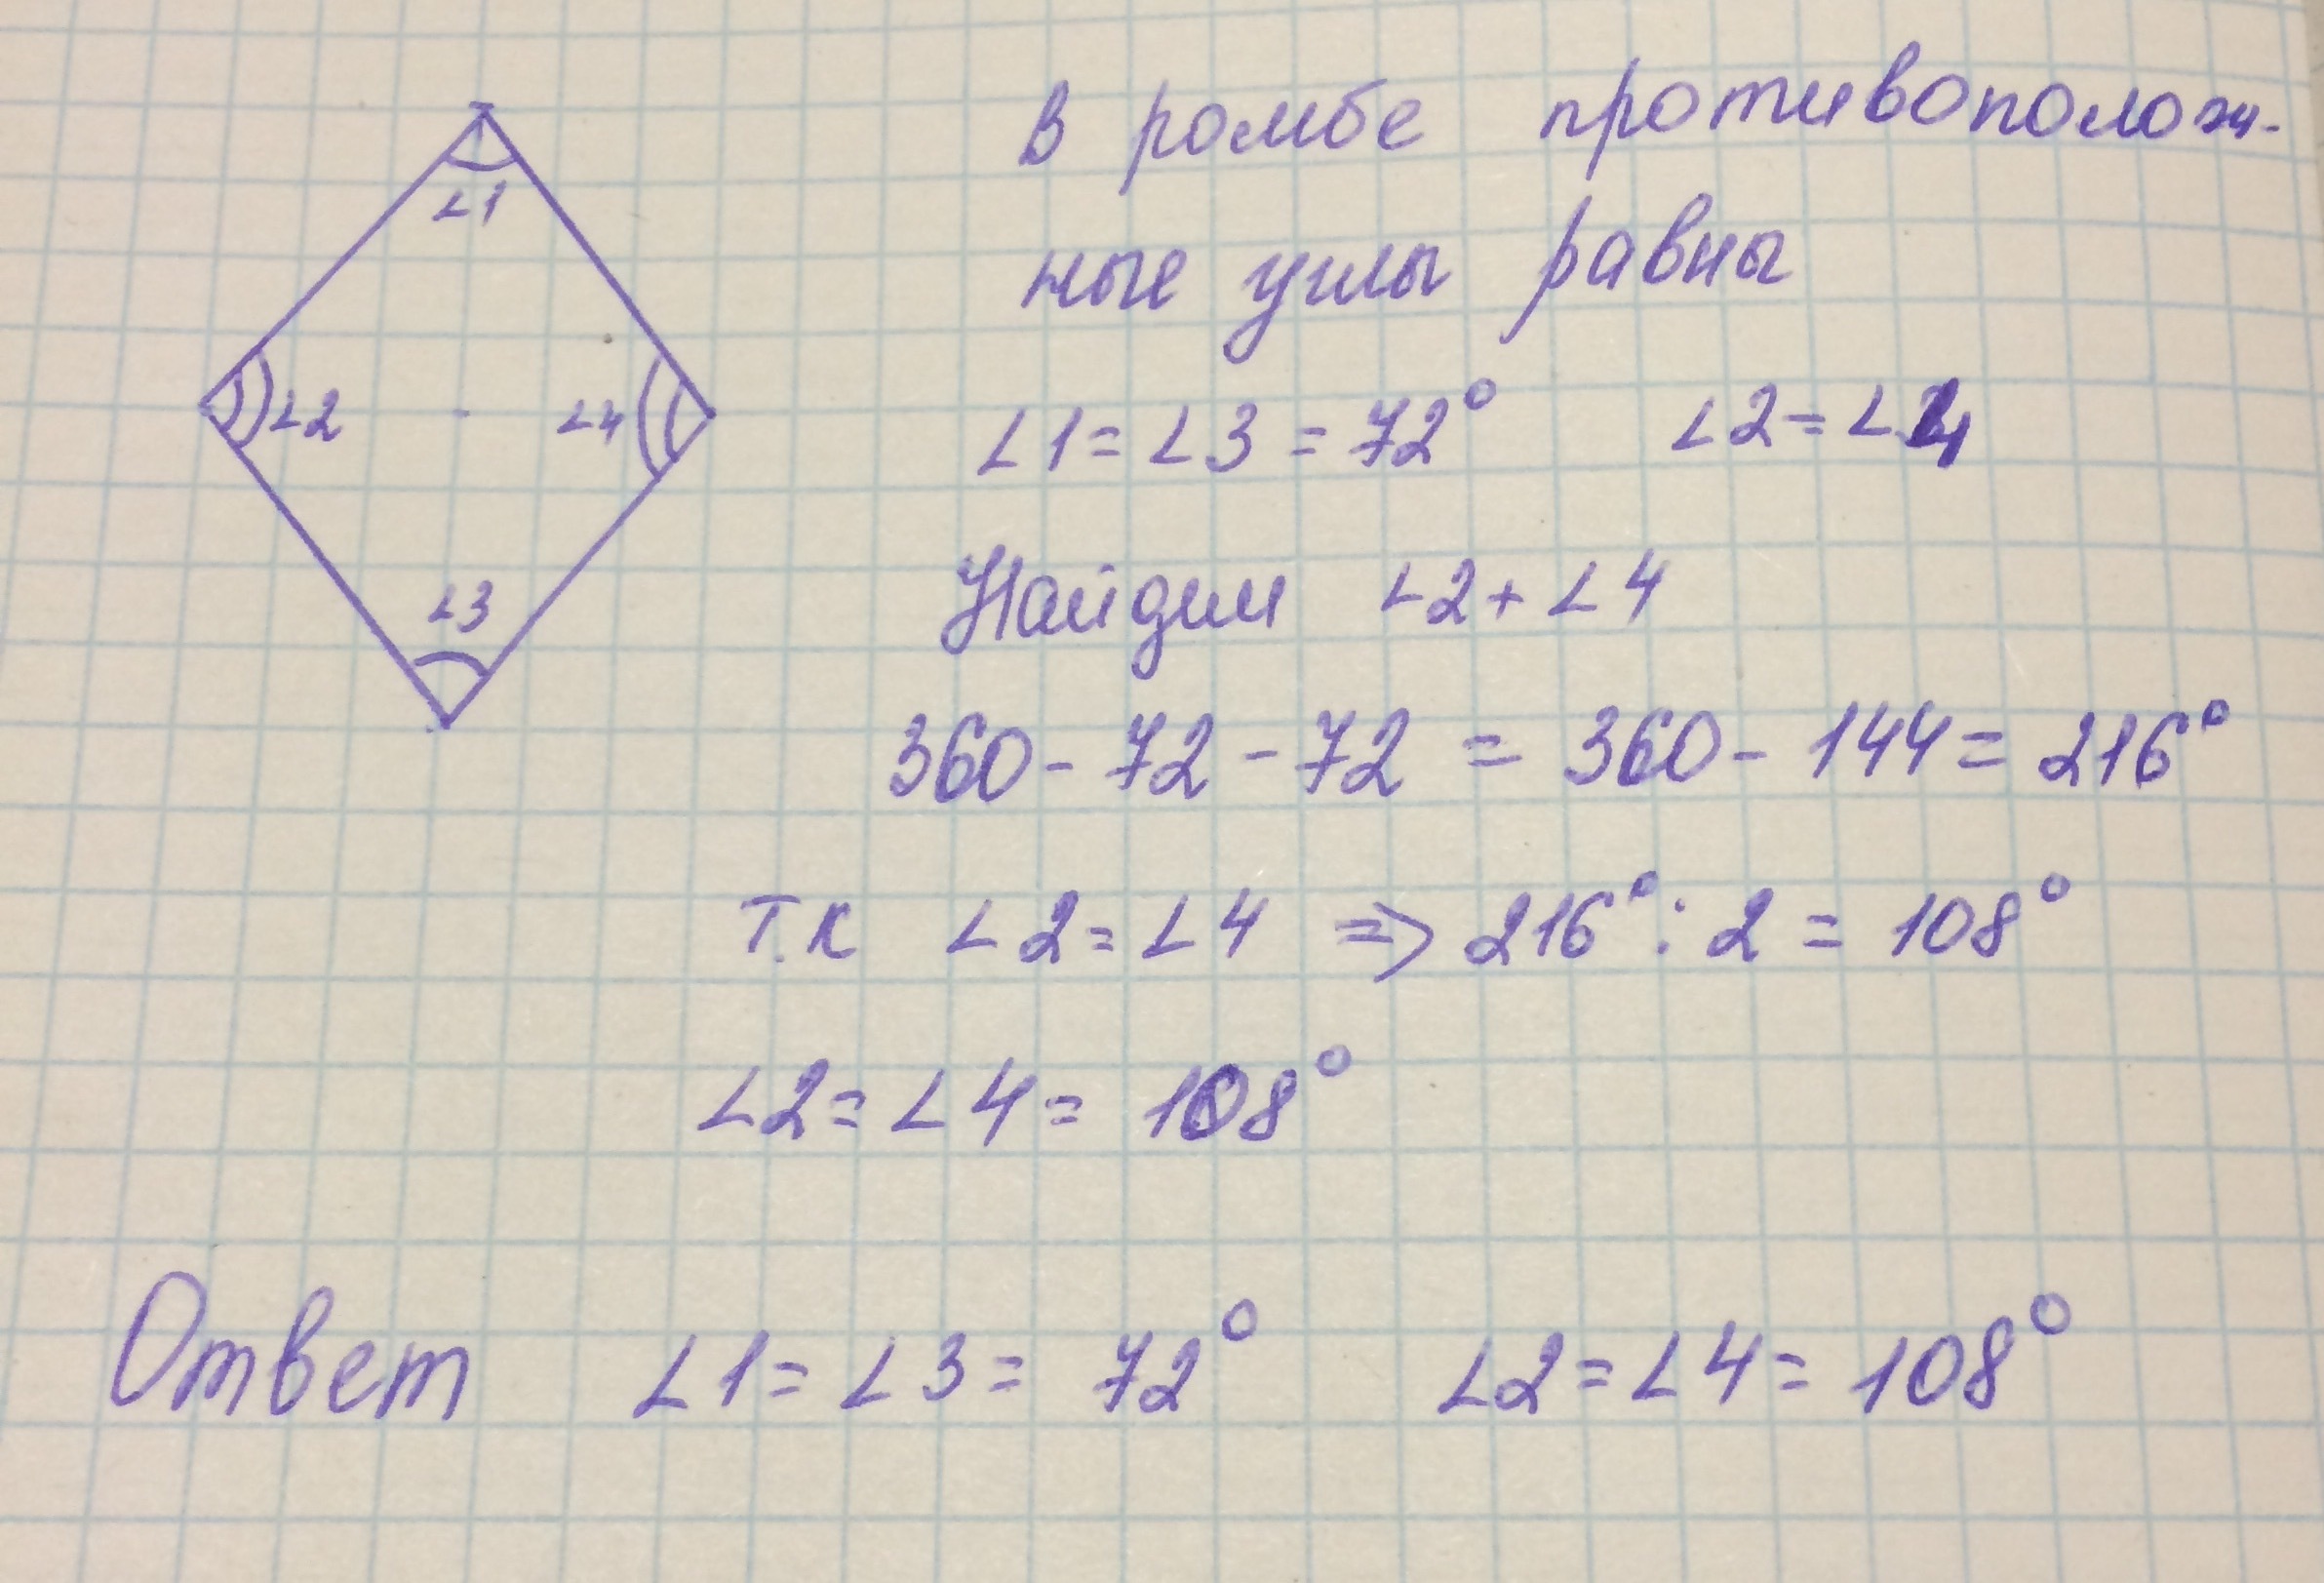 ∠1
∠2
∠4
∠3
В ромбе противополож-
ные углы равны
∠1 = ∠3 = 72° ∠2 = ∠4
Найдем ∠2 + ∠4
360 - 72 - 72 = 360 - 144 = 216°
Т.к ∠2 = ∠4 => 216° : 2 = 108°
∠2 = ∠4 = 108°
Ответ ∠1 = ∠3 = 72° ∠2 = ∠4 = 108°